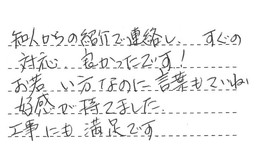 知人からの紹介で連絡し、すぐの
対応 良かったです!
お若い方なのに言葉もていねい
好感が持てました
工事にも満足です